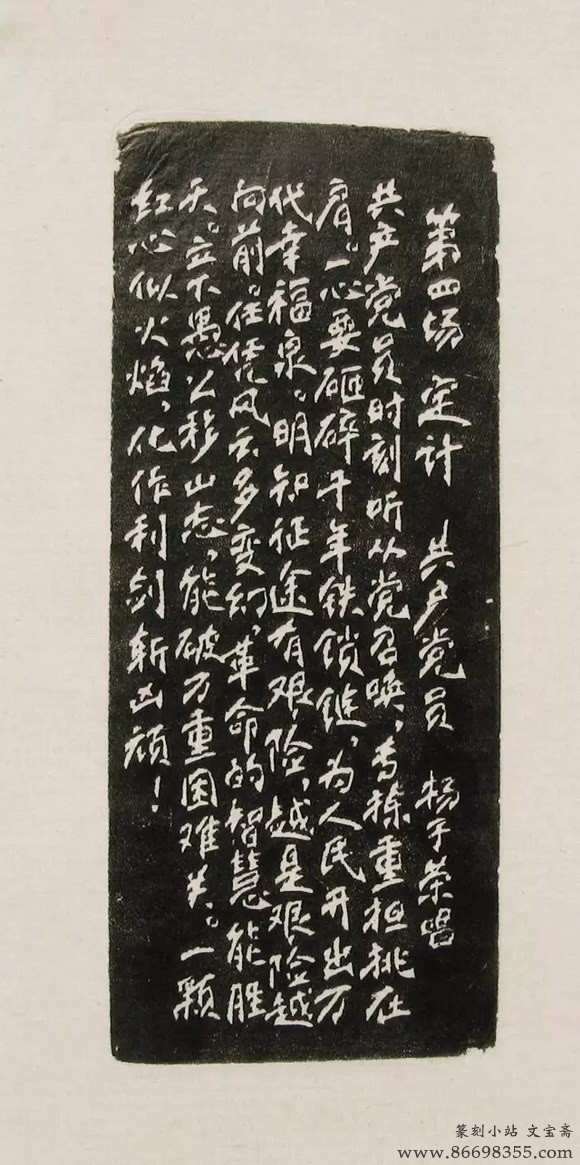 第四场 定计 共产党员 杨子荣唱
共产党员时刻听从党召唤，专拣重担挑在
肩。一心要砸碎千年铁锁链，为人民开出万
代幸福泉。明知征途有艰险，越是艰险越
向前。任凭风云多变幻，革命的智慧能胜
天。立下愚公移山志，能破万重困难关。一颗
红心似火焰，化作利剑斩凶顽！
篆刻小站 文宝斋
www.86698355.com